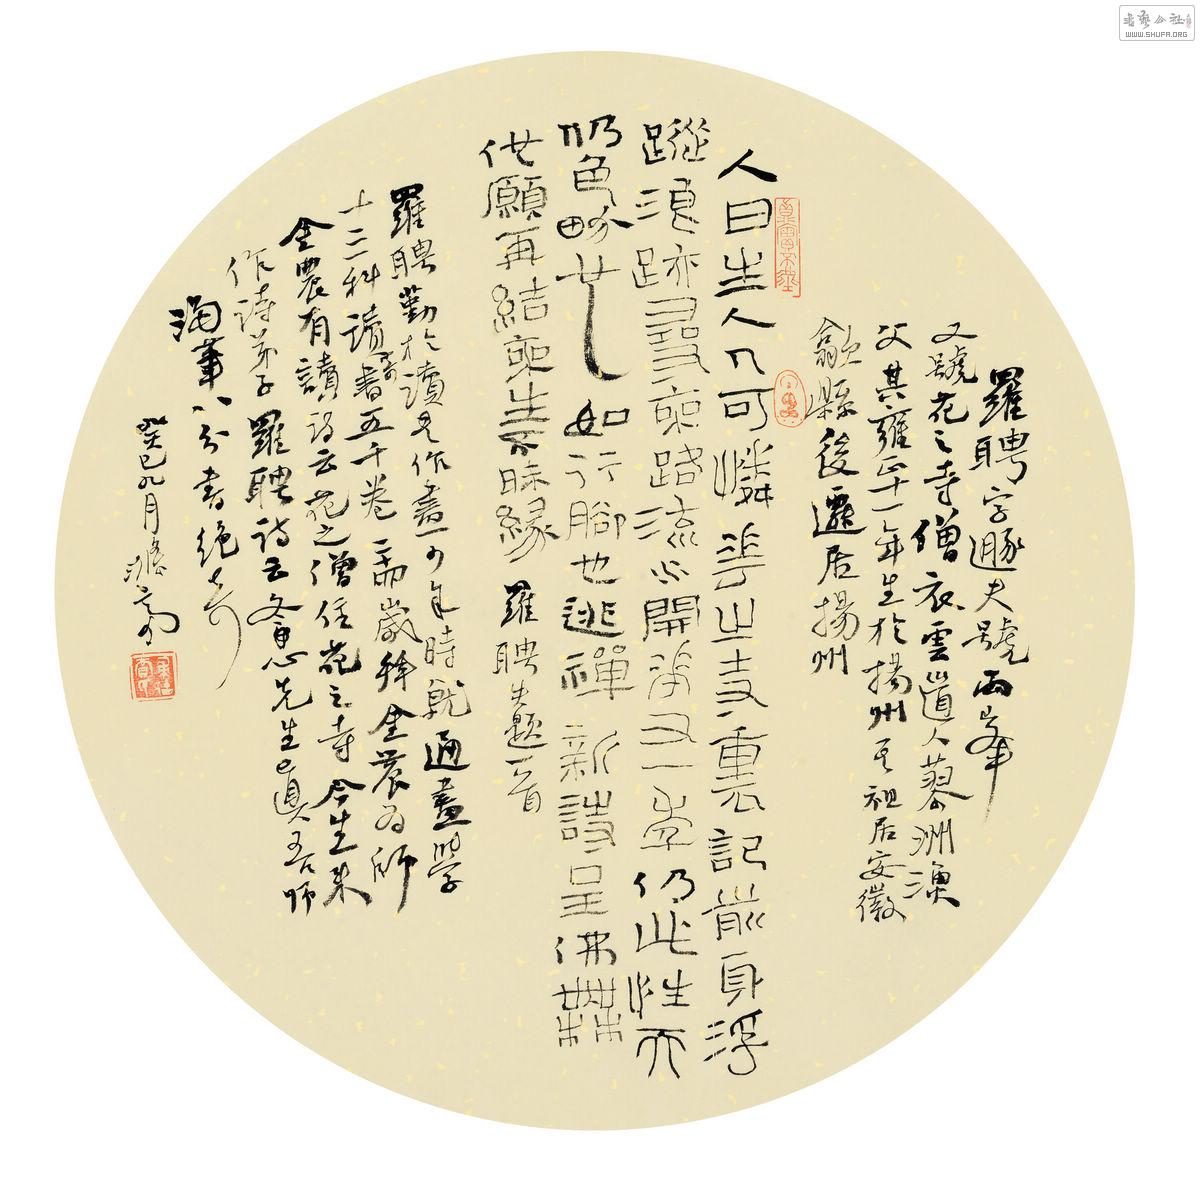 羅聘字遯夫號兩峯
又號花之寺僧衣雲道人蓼洲漁
父其雍正十一年生於揚州其祖居安徽
歙縣後遷居揚州
人日生人人可憐華之寺裏記前身浮
蹤浪跡尋來路流水開花又一年仍此性天
仍色 如行腳也逃禪新詩呈佛
世願再結來生未昧緣羅聘 題一首
羅聘勤於讀 作畫少年時就通畫學
十三科讀奇書五千卷二 歲拜金農為師
金農有讀 云花之僧住花之寺今生來
作詩弟子羅聘詩云冬心先生真吾師
八分書絕奇
癸巳九月
書藝公社
WWW.SHUFA.ORG